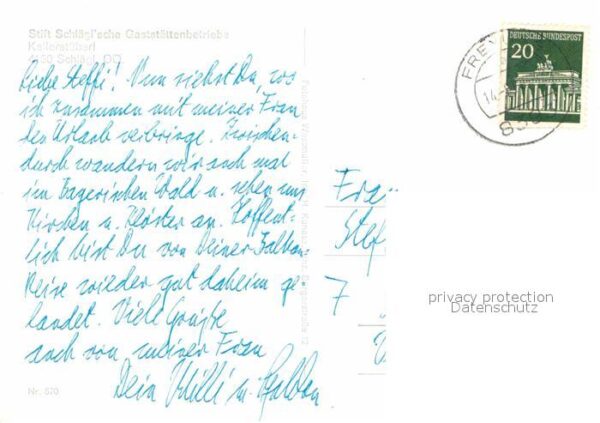 Stift Schlägl'sche Gaststättenbetriebe
Kellerstüberl
4160 Schlägl, OÖ.
Liebe Steffi! Nun siehst Du, wo
ich zusammen mit meiner Frau
den Urlaub verbringe. Zwischen-
durch wandern wir auch mal
im Bayerischen Wald u. sehen uns
Kirchen u. Klöster an. Hoffent-
lich bist Du von Deiner Balkan-
Reise wieder gut daheim ge
landet. Viele Grüße
auch von meiner Frau
Dein Willi
Nr. 570
DEUTSCHE BUNDESPOST
20
FREY
14.
Frau
Stef
7
privacy protection
Datenschutz